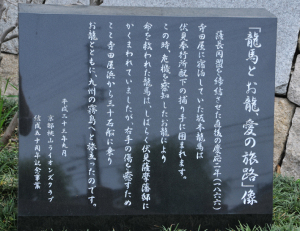 「龍馬とお龍、愛の旅路」像
薩長同盟を締結させた直後の慶応二年（一八六六）
寺田屋に宿泊していた坂本龍馬は
伏見奉行所配下の捕り手に囲まれます。
この時、危機を察知したお龍により
命を救われた龍馬は、しばらく伏見薩摩藩邸に
かくまわれていましたが、右手の傷を癒すため
ここ寺田屋浜から三十石船に乗り
お龍とともに、九州の霧島へと旅立ったのです。
平成二十三年九月
京都桃山ライオンズクラブ
結成五十周年記念事業